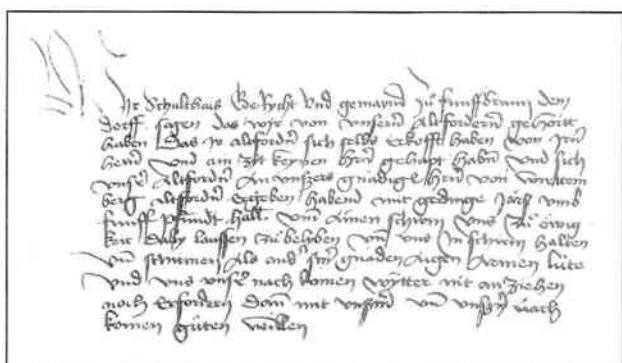 Wir Schulthais Gericht vnd gemaind zu funffbrunn dem
dorff sagen das wir von vnsern Altfordern gehortt
haben Das Ir altfordrn sich selbs erkofft haben von Irn
hern vnd ain Zyt keynen hern gehapt habn vnd sich
vnser Altfordrn An vnsers gnädigen hern von
berg Altfordrn ergeben habend mit gedinge Järlich vmb
funff pfundt hallr vnd ainen schirm vns zu ewig
keit Daby laussen zu beliben vnd vns In schirm halten
vnd schirmen Als ander sin gnäden Aigen Armen lüte
Vnd vns vnser nach komen wytter nit an ziehen
noch Erfordern Dann mit vnserm vnd vnser nach
komen güten willen